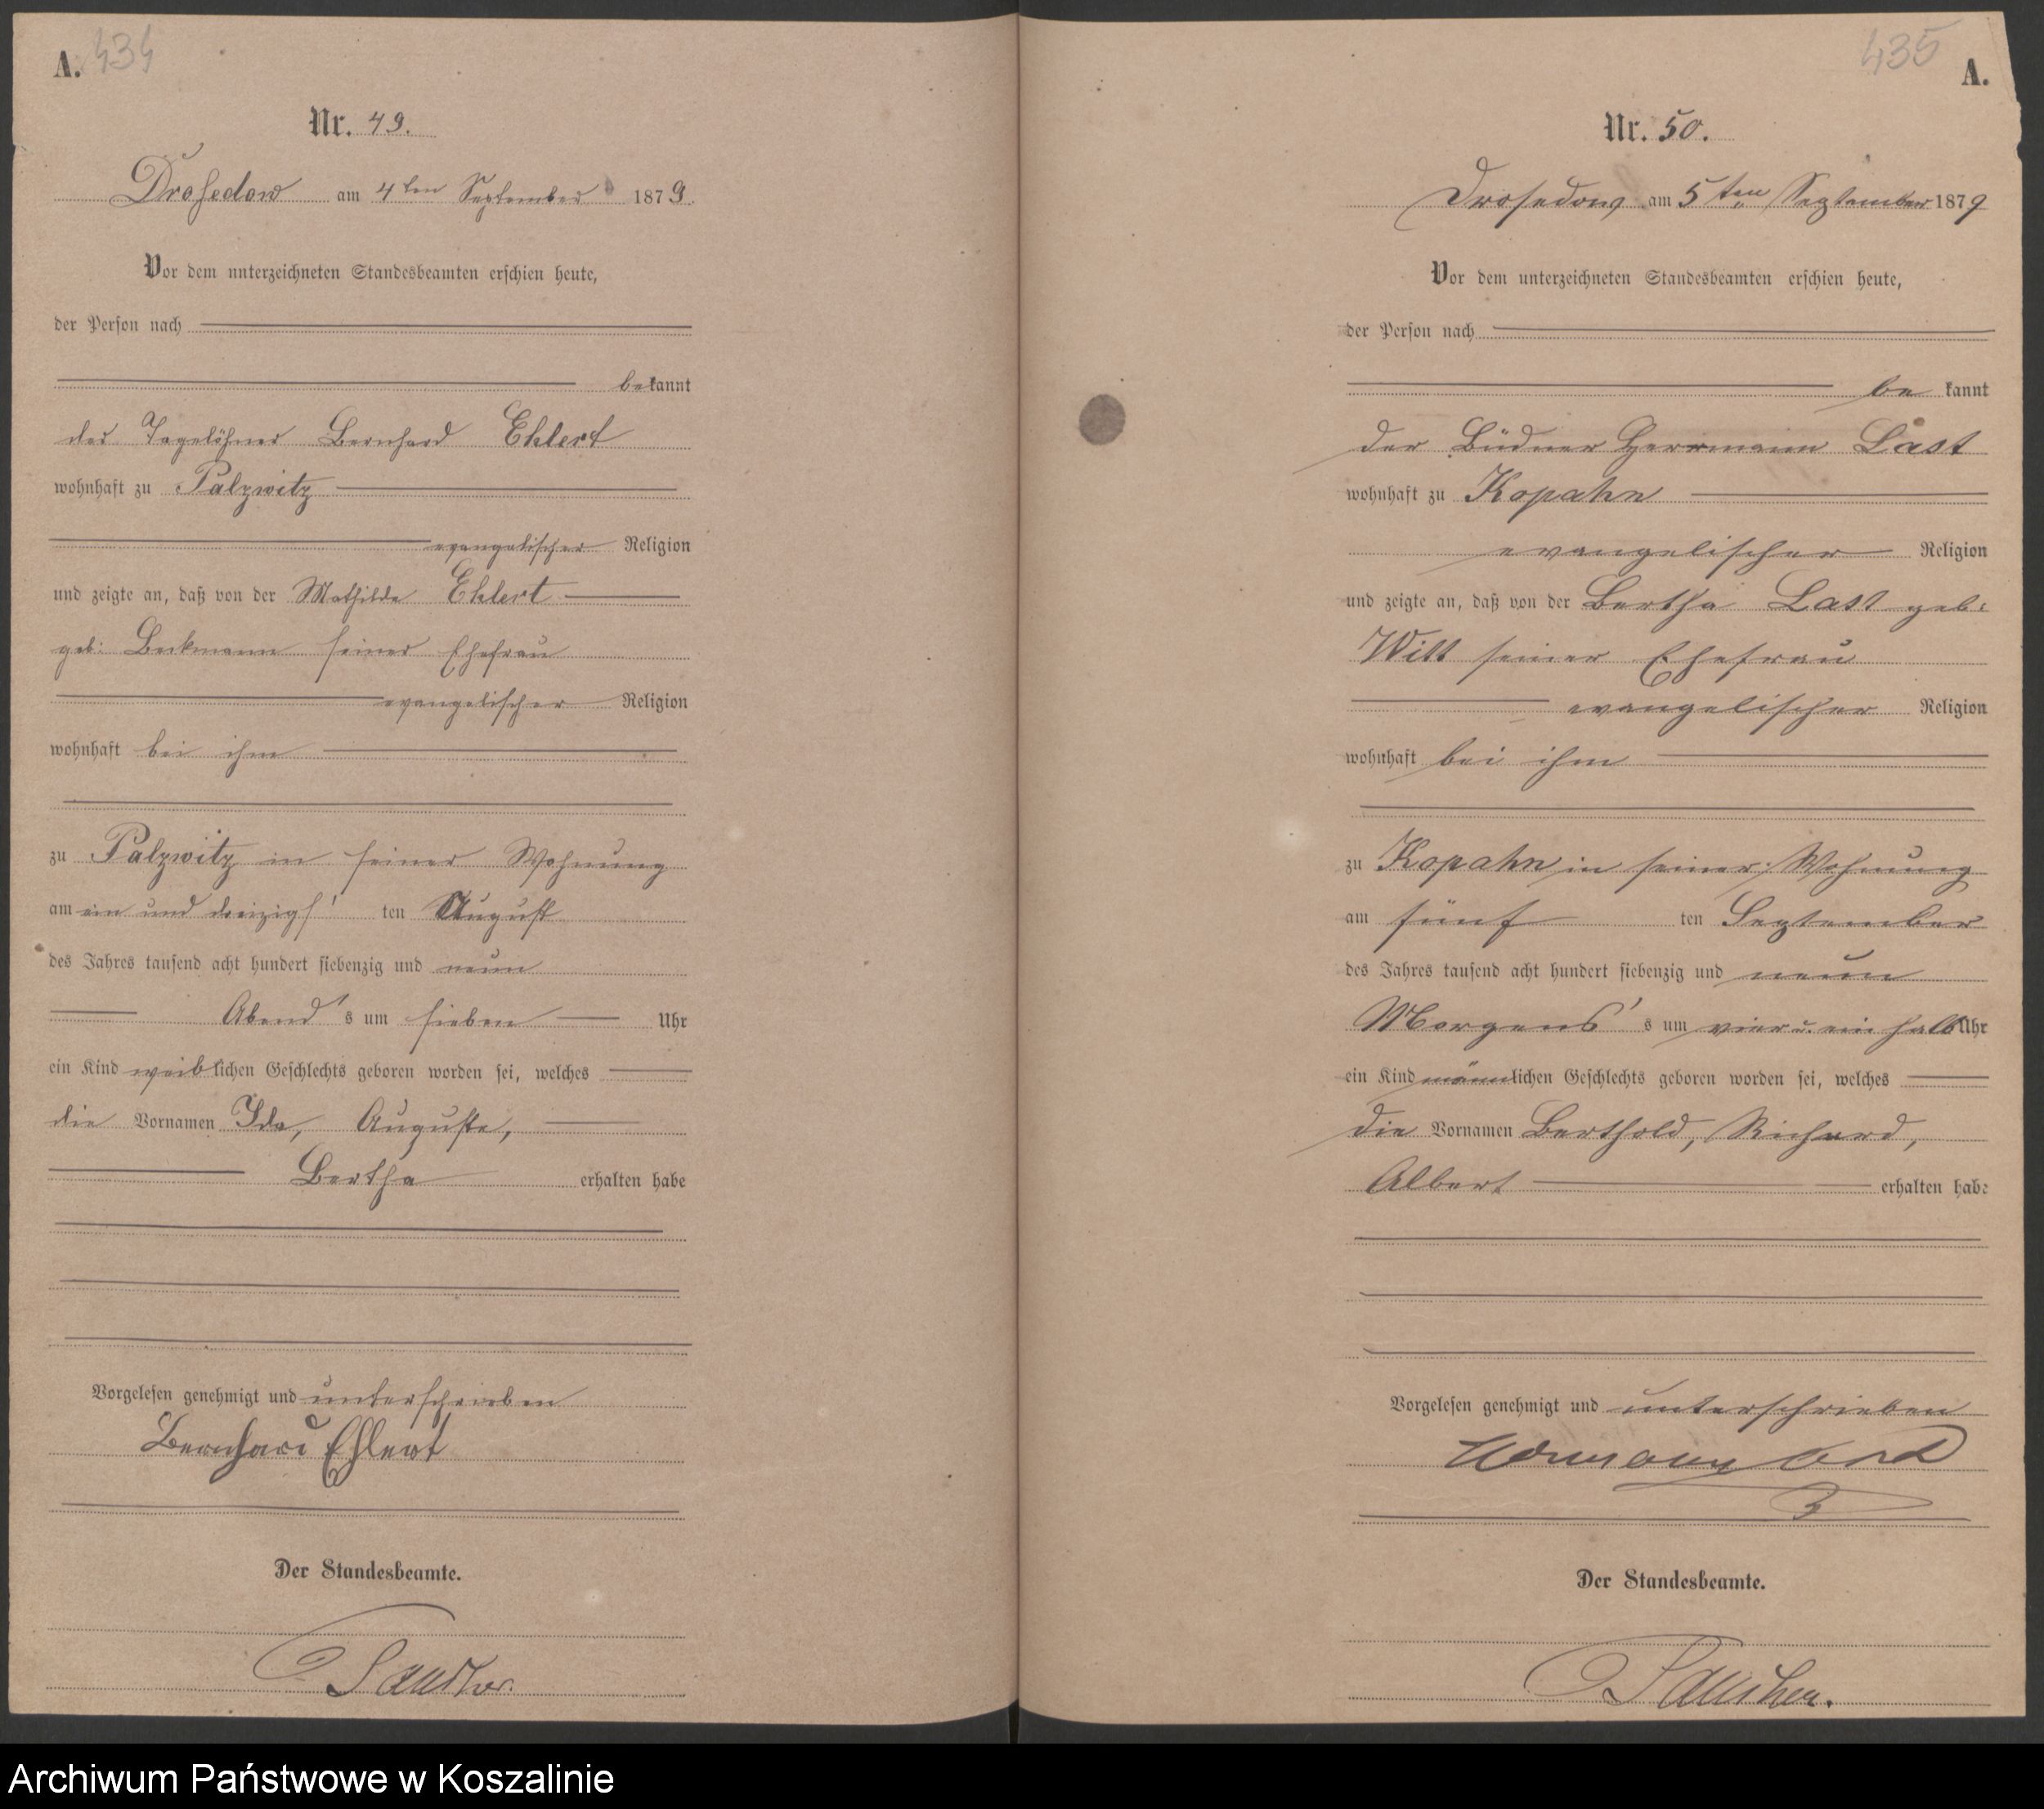 A. 434
Nr. 49.
Drosedow am 4ten September 1879.
Vor dem unterzeichneten Standesbeamten erschien heute,
der Person nach
bekannt
der Tagelöhner Bernhard Ehlert
wohnhaft zu Palzwitz
evangelischer Religion
und zeigte an, daß von der Mathilde Ehlert
geb: Beckmann seiner Ehefrau
evangelischer Religion
wohnhaft bei ihm
zu Palzwitz in seiner Wohnung
am ein und dreizigs' ten August
des Jahres tausend acht hundert siebenzig und neun
Abend's um sieben Uhr
ein Kind weiblichen Geschlechts geboren worden sei, welches
die Vornamen Ida, Auguste,
Bertha erhalten habe
Vorgelesen genehmigt und unterschrieben
Bernhard Ehlert
Der Standesbeamte.
435 A.
Nr. 50.
Drosedow am 5ten September 1879
Vor dem unterzeichneten Standesbeamten erschien heute,
der Person nach
be kannt
der Büdner Herrmann Last
wohnhaft zu Kopahn
evangelischer Religion
und zeigte an, daß von der Bertha Last geb:
Witt seiner Ehefrau
evangelischer Religion
wohnhaft bei ihm
zu Kopahn in seiner Wohnung
am fünf ten September
des Jahres tausend acht hundert siebenzig und neun
Morgens' s um vier u. ein halb Uhr
ein Kind männlichen Geschlechts geboren worden sei, welches
die Vornamen Berthold, Richard,
Albert erhalten habe
Vorgelesen genehmigt und unterschrieben
Der Standesbeamte.
Archiwum Państwowe w Koszalinie